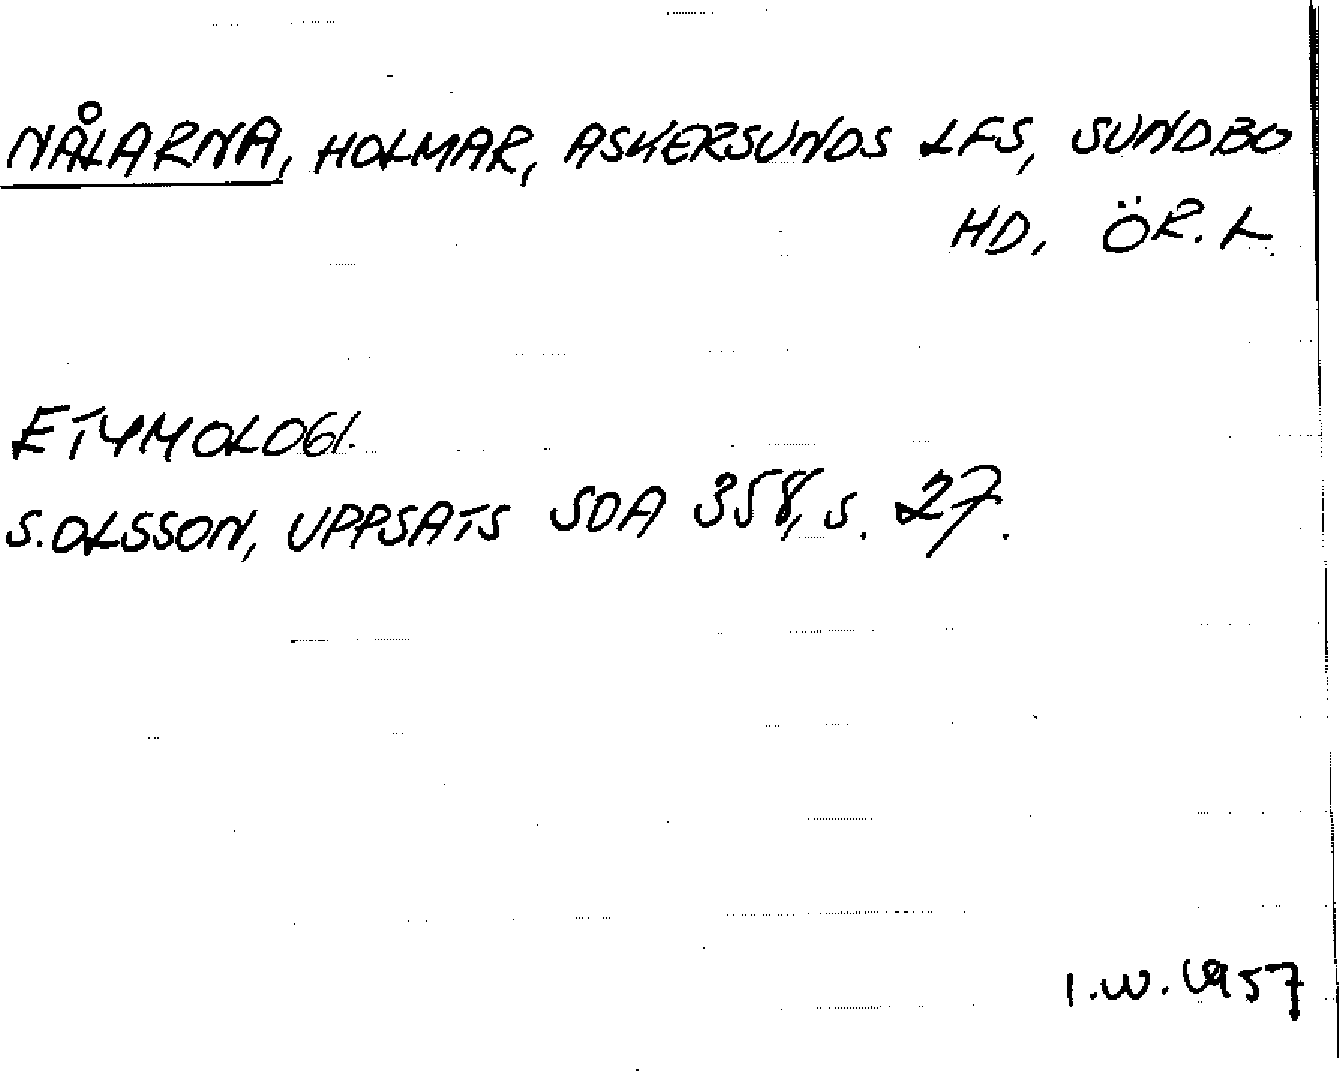 NÅLARNA, HOLMAR, ASKERSUNDS LFS, SUNDBO
HD, ÖR. L.
ETYMOLOGI.
S. OLSSON, UPPSATS SOA 358, S. 27.
I.W. 1957